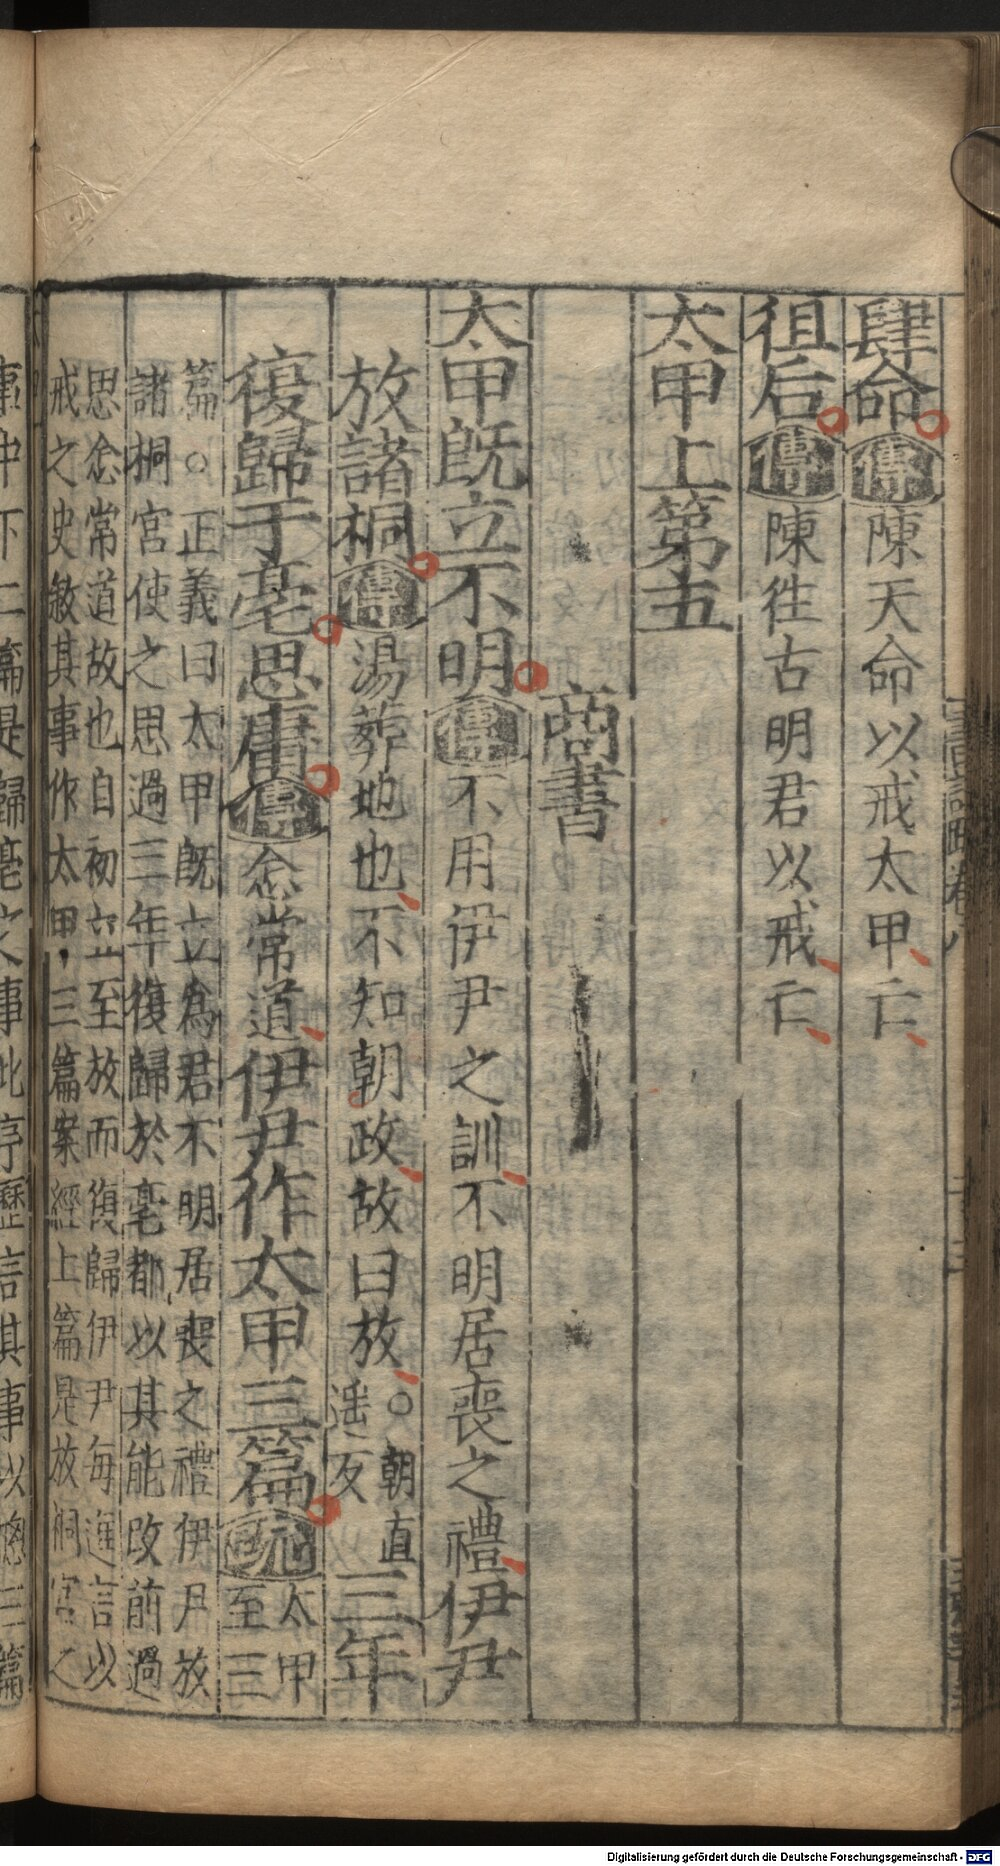 肆命傳陳天命以戒太甲亡
徂后傳陳徃古明君以戒亡
太甲上第五
商書
太甲旣立不明傳不用伊尹之訓不明居喪之禮伊尹
放諸桐傳湯葬地也不知朝政故曰放○朝直遥反三年
復歸于亳思庸傳念常道伊尹作太甲三篇疏太甲至三
篇○正義曰太甲旣立爲君不明居喪之禮伊尹放
諸桐宮使之思過三年復歸於亳都以其能改前過
思念常道故也自初立至放而復歸伊尹每進言以
戒之史敘其事作太甲三篇案經上篇是放桐宮之
事中下二篇是歸亳之事此序歷言其事以總三篇
Digitalisierung gefördert durch die Deutsche Forschungsgemeinschaft - DFG